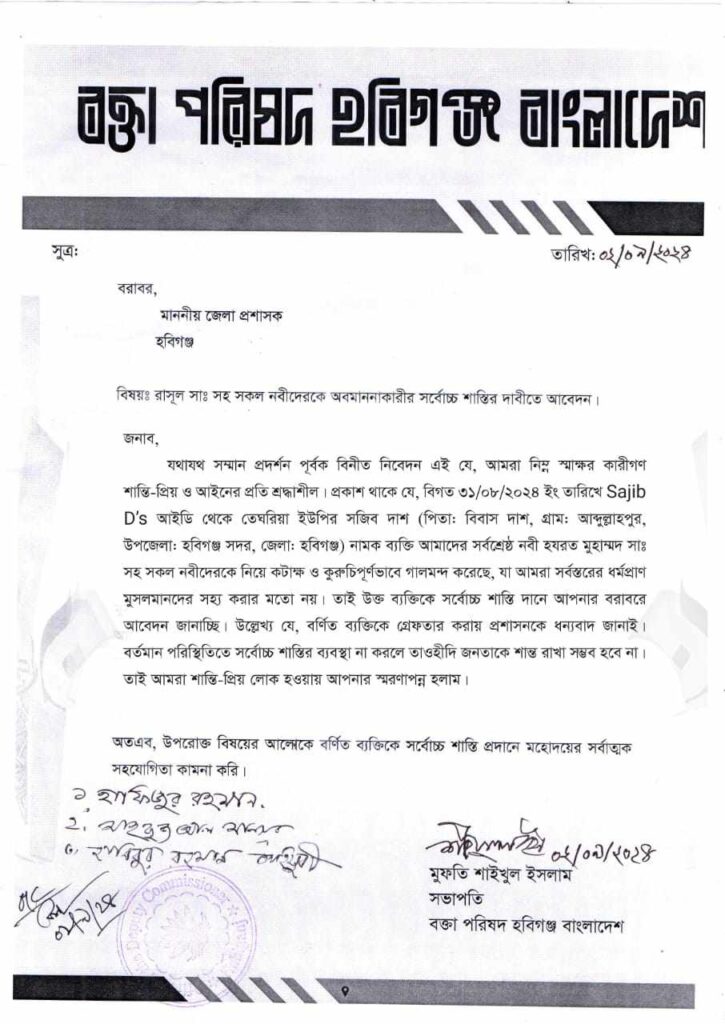 বক্তা পরিষদ হবিগঞ্জ বাংলাদেশ
সুত্র:
তারিখ: ০২/০৯/২০২৪
বরাবর,
মাননীয় জেলা প্রশাসক
হবিগঞ্জ
বিষয়ঃ রাসূল সাঃ সহ সকল নবীদেরকে অবমাননাকারীর সর্বোচ্চ শাস্তির দাবীতে আবেদন।
জনাব,
যথাযথ সম্মান প্রদর্শন পূর্বক বিনীত নিবেদন এই যে, আমরা নিম্ন স্মাক্ষর কারীগণ
শান্তি-প্রিয় ও আইনের প্রতি শ্রদ্ধাশীল। প্রকাশ থাকে যে, বিগত ৩১/০৮/২০২৪ ইং তারিখে Sajib
D's আইডি থেকে তেঘরিয়া ইউপির সজিব দাশ (পিতা: বিবাস দাশ, গ্রাম: আব্দুল্লাহপুর,
উপজেলা: হবিগঞ্জ সদর, জেলা: হবিগঞ্জ) নামক ব্যক্তি আমাদের সর্বশ্রেষ্ঠ নবী হযরত মুহাম্মদ সাঃ
সহ সকল নবীদেরকে নিয়ে কটাক্ষ ও কুরুচিপূর্ণভাবে গালমন্দ করেছে, যা আমরা সর্বস্তরের ধর্মপ্রাণ
মুসলমানদের সহ্য করার মতো নয়। তাই উক্ত ব্যক্তিকে সর্বোচ্চ শাস্তি দানে আপনার বরাবরে
আবেদন জানাচ্ছি। উল্লেখ্য যে, বর্ণিত ব্যক্তিকে গ্রেফতার করায় প্রশাসনকে ধন্যবাদ জানাই।
বর্তমান পরিস্থিতিতে সর্বোচ্চ শাস্তির ব্যবস্থা না করলে তাওহীদি জনতাকে শান্ত রাখা সম্ভব হবে না।
তাই আমরা শান্তি-প্রিয় লোক হওয়ায় আপনার স্মরণাপন্ন হলাম।
অতএব, উপরোক্ত বিষয়ের আলোকে বর্ণিত ব্যক্তিকে সর্বোচ্চ শাস্তি প্রদানে মহোদয়ের সর্বাত্মক
সহযোগিতা কামনা করি।
১. হাফিজুর রহমান.
২.
৩. হাবিবুর রহমান
০২/০৯/২০২৪
মুফতি শাইখুল ইসলাম
সভাপতি
বক্তা পরিষদ হবিগঞ্জ বাংলাদেশ
Deputy Commissioner